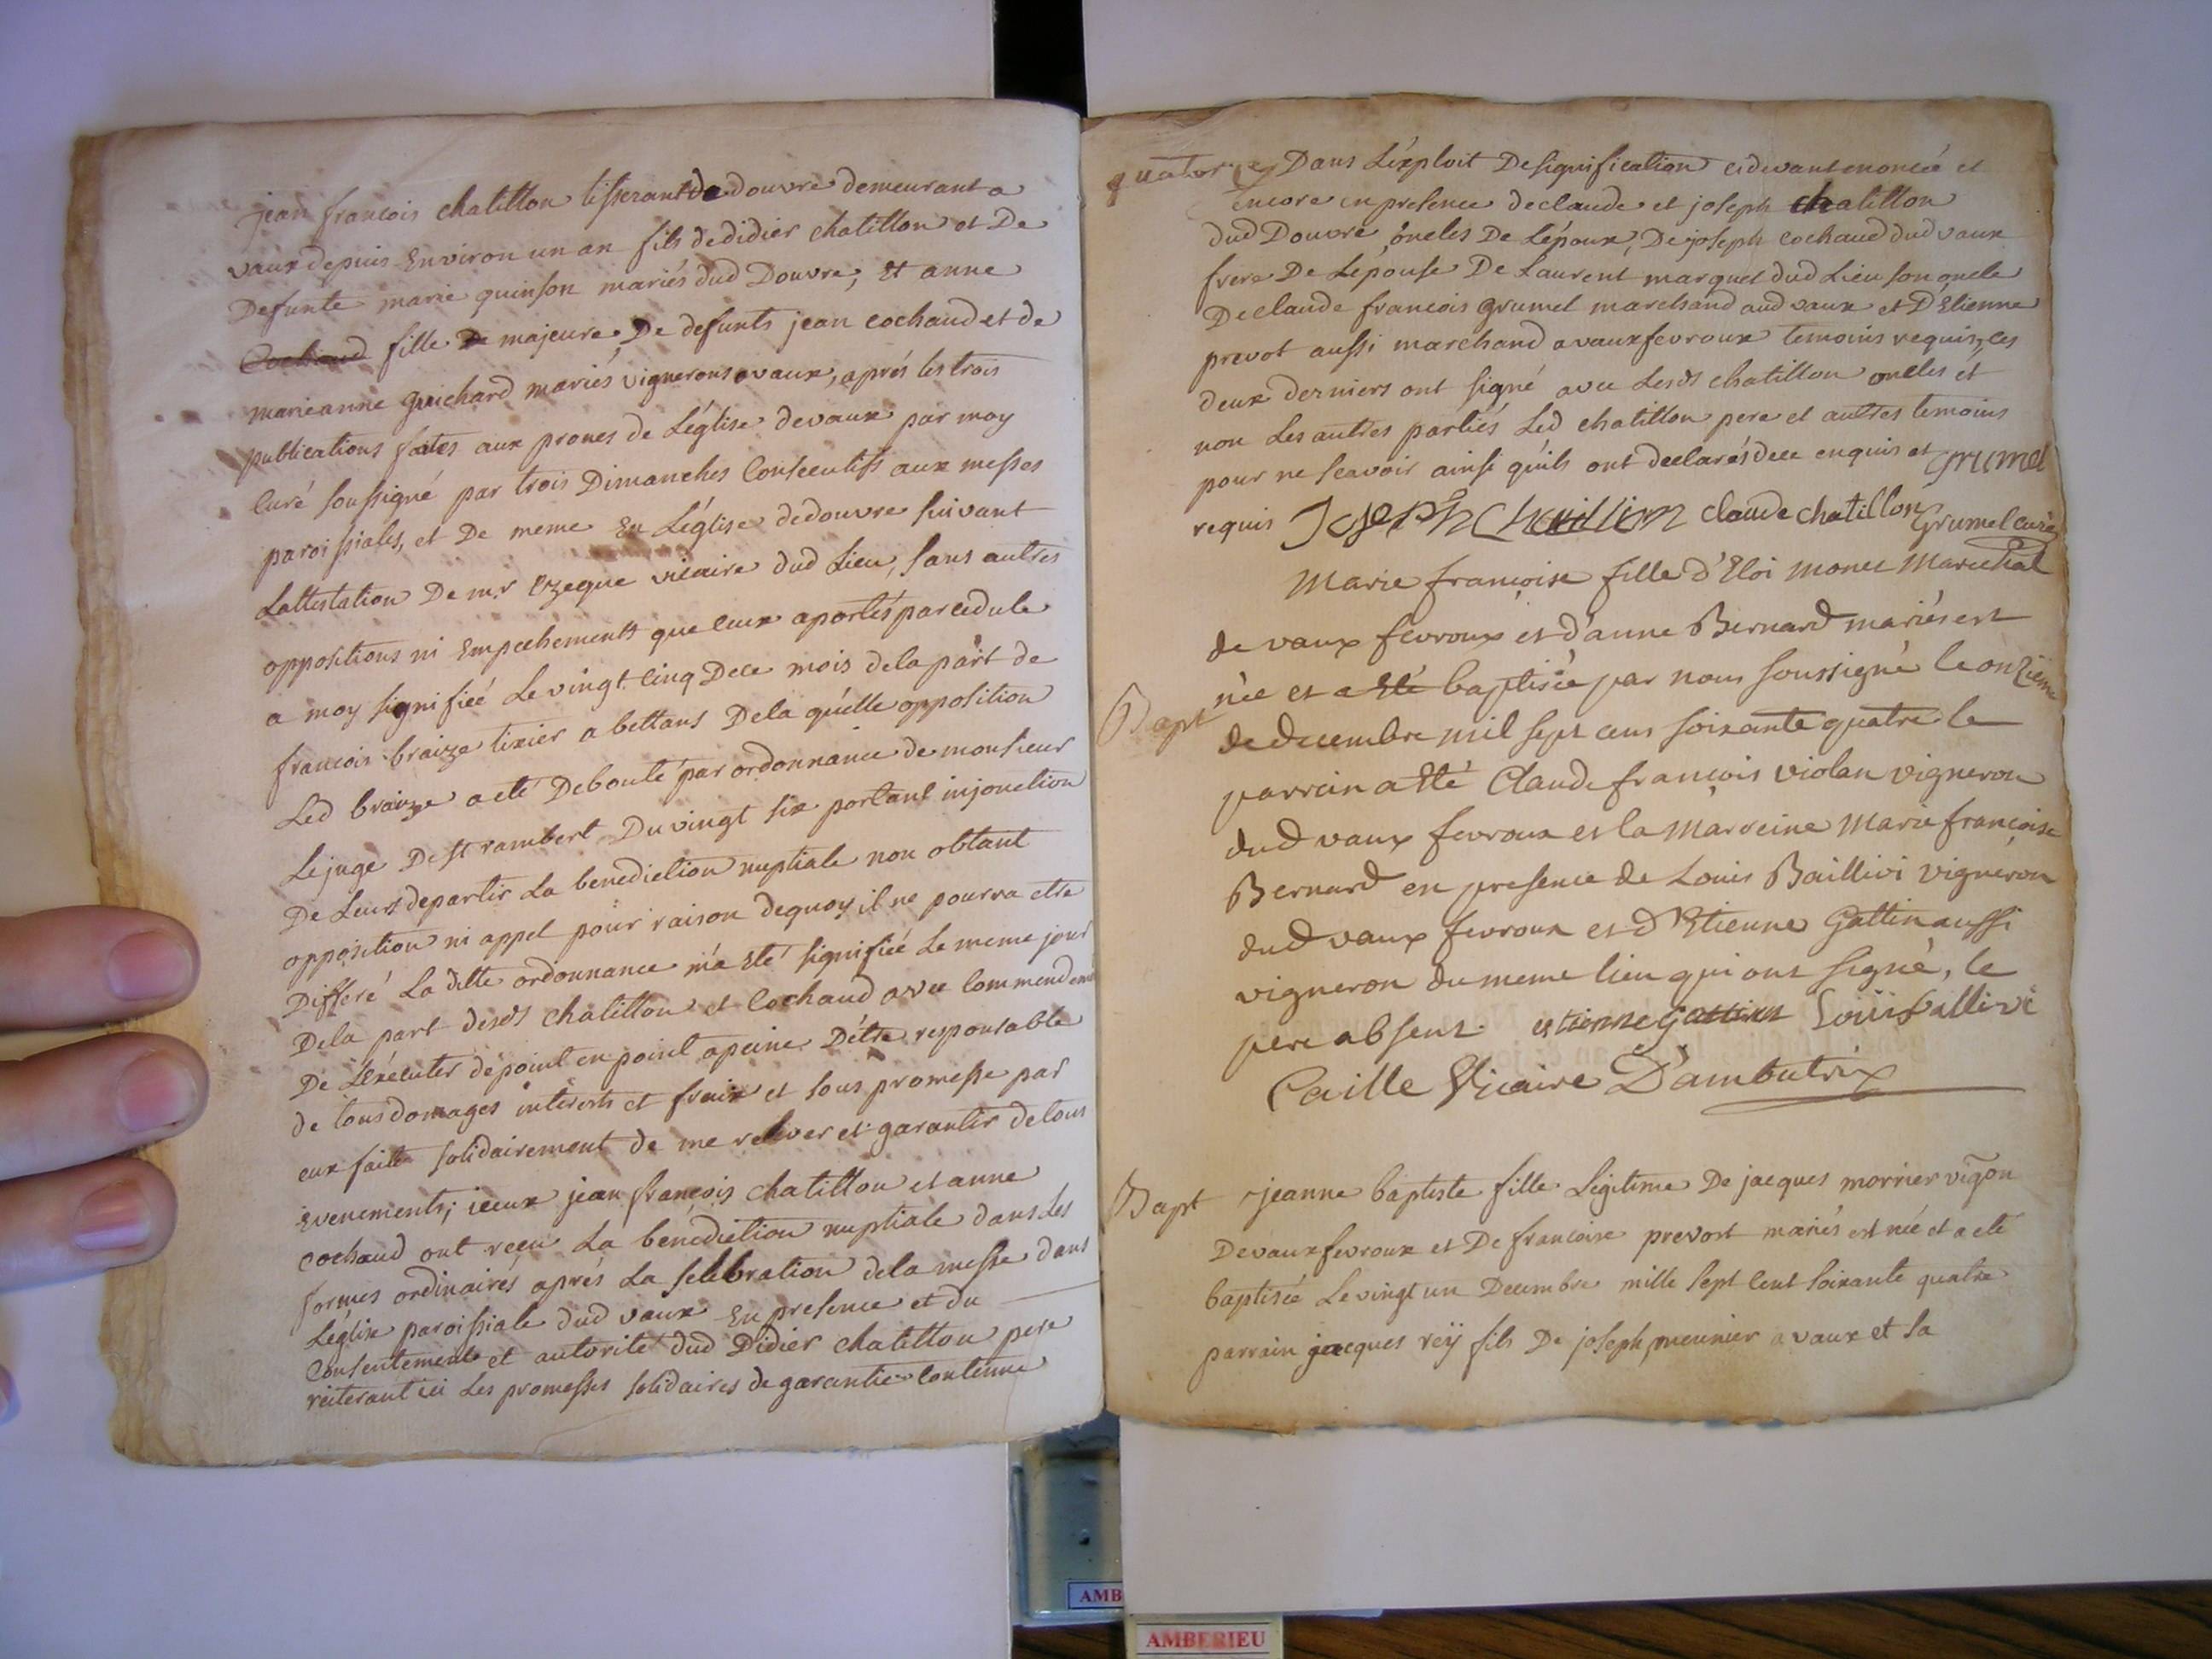 jean francois chatillon tisserant de douvre demeurant a
vaux depuis Environ un an fils de didier chatillon et De
Defunte marie quinson mariés dud Douvre, Et anne
Cochaud fille De majeure De defunts jean cochaud et de
marieanne guichard mariés vignerons a vaux, aprés les trois
publications faites aux prones de L'église de vaux par moy
curé soussigné par trois Dimanches Consecutifs aux messes
paroissiales, et De meme En L'église de douvre suivant
L'attestation De mr Ozeque vicaire dud Lieu, sans autres
oppositions ni Empechements que ceux aportés par cedule
a moy signifiée Le vingt cinq De ce mois de la part de
francois braize tixier a bettans De la quelle opposition
Led braize a eté Debouté par ordonnance de monsieur
Le juge De st rambert Du vingt six portant injonction
De Leurs departir La benediction nuptiale non obtant
opposition ni appel pour raison de quoy il ne pourra etre
Differé La ditte ordonnance m'a Eté signifiée Le meme jour
De la part desds chatillon et Cochaud avec Commendemt
De L'éxécuter de point en point a peine D'être responsable
de tous domages interests et fraix et sous promesse par
eux faitte solidairement de me relever et garantir de tous
Evenements; iceux jean francois chatillon et anne
cochaud ont reçu La bénédiction nuptiale dans les
formes ordinaires aprés La selebration de la messe dans
L'église paroissiale dud vaux En presence et du
Consentement et autorité dud Didier chatillon pere
reiterant ici Les promesses solidaires de garantie contenue
quatorze Dans L'éxploit De signification ci devant enoncée et
Encore en presence de claude et joseph chatillon
dud Douvre oncles De L'époux, De joseph cochaud dud vaux
frere De L'épouse De Laurent marquet dud Lieu son oncle
De claude francois grumel marchand aud vaux et D'Etienne
prevot aussi marchand a vaux fevroux temoins requis, les
deux derniers ont signé avec Lesds chatillon oncles et
non Les autres parties Led chatillon pere et autres temoins
pour ne scavoir ainsi qu'ils ont declarés de ce enquis et grumel
requis Joseph Chatillion claude chatillon Grumel curé
Marie françoise fille d'Eloi monet Marechal
de vaux fevroux et d'anne Bernard mariés est
Bapt née et a Eté baptisée par nous soussigné le onzieme
de decembre mil sept cens soixante quatre le
parrain a Eté Claude françois violan vigneron
dud vaux fevroux et la Marreine Marie françoise
Bernard en presence de Louis Baillivi vigneron
dud vaux fevroux et d'Etienne Gattin aussi
vigneron du meme lieu qui ont signé, le
pere absent. estienne gattin Louis ballivi
Caille Vicaire D'ambutrix
Bapt jeanne baptiste fille Légitime De jacques morrier vigon
De vaux fevroux et De francoise prevost mariés est née et a eté
baptisée Le vingt un Decembre mille sept cent soixante quatre
parrain jacques reÿ fils De joseph meunier a vaux et la
AMB
AMBERIEU